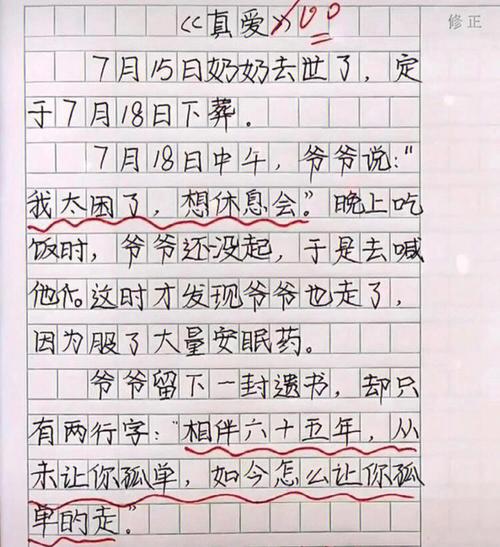 《真爱》100
修正
7月15日奶奶去世了，定
于7月18日下葬。
7月18日中午，爷爷说："
我太困了，想休息会。"晚上吃
饭时，爷爷还没起，于是去喊
他。这时才发现爷爷也走了，
因为服了大量安眠药。
爷爷留下一封遗书，却只
有两行字："相伴六十五年，从
未让你孤单，如今怎么让你孤
单的走。"